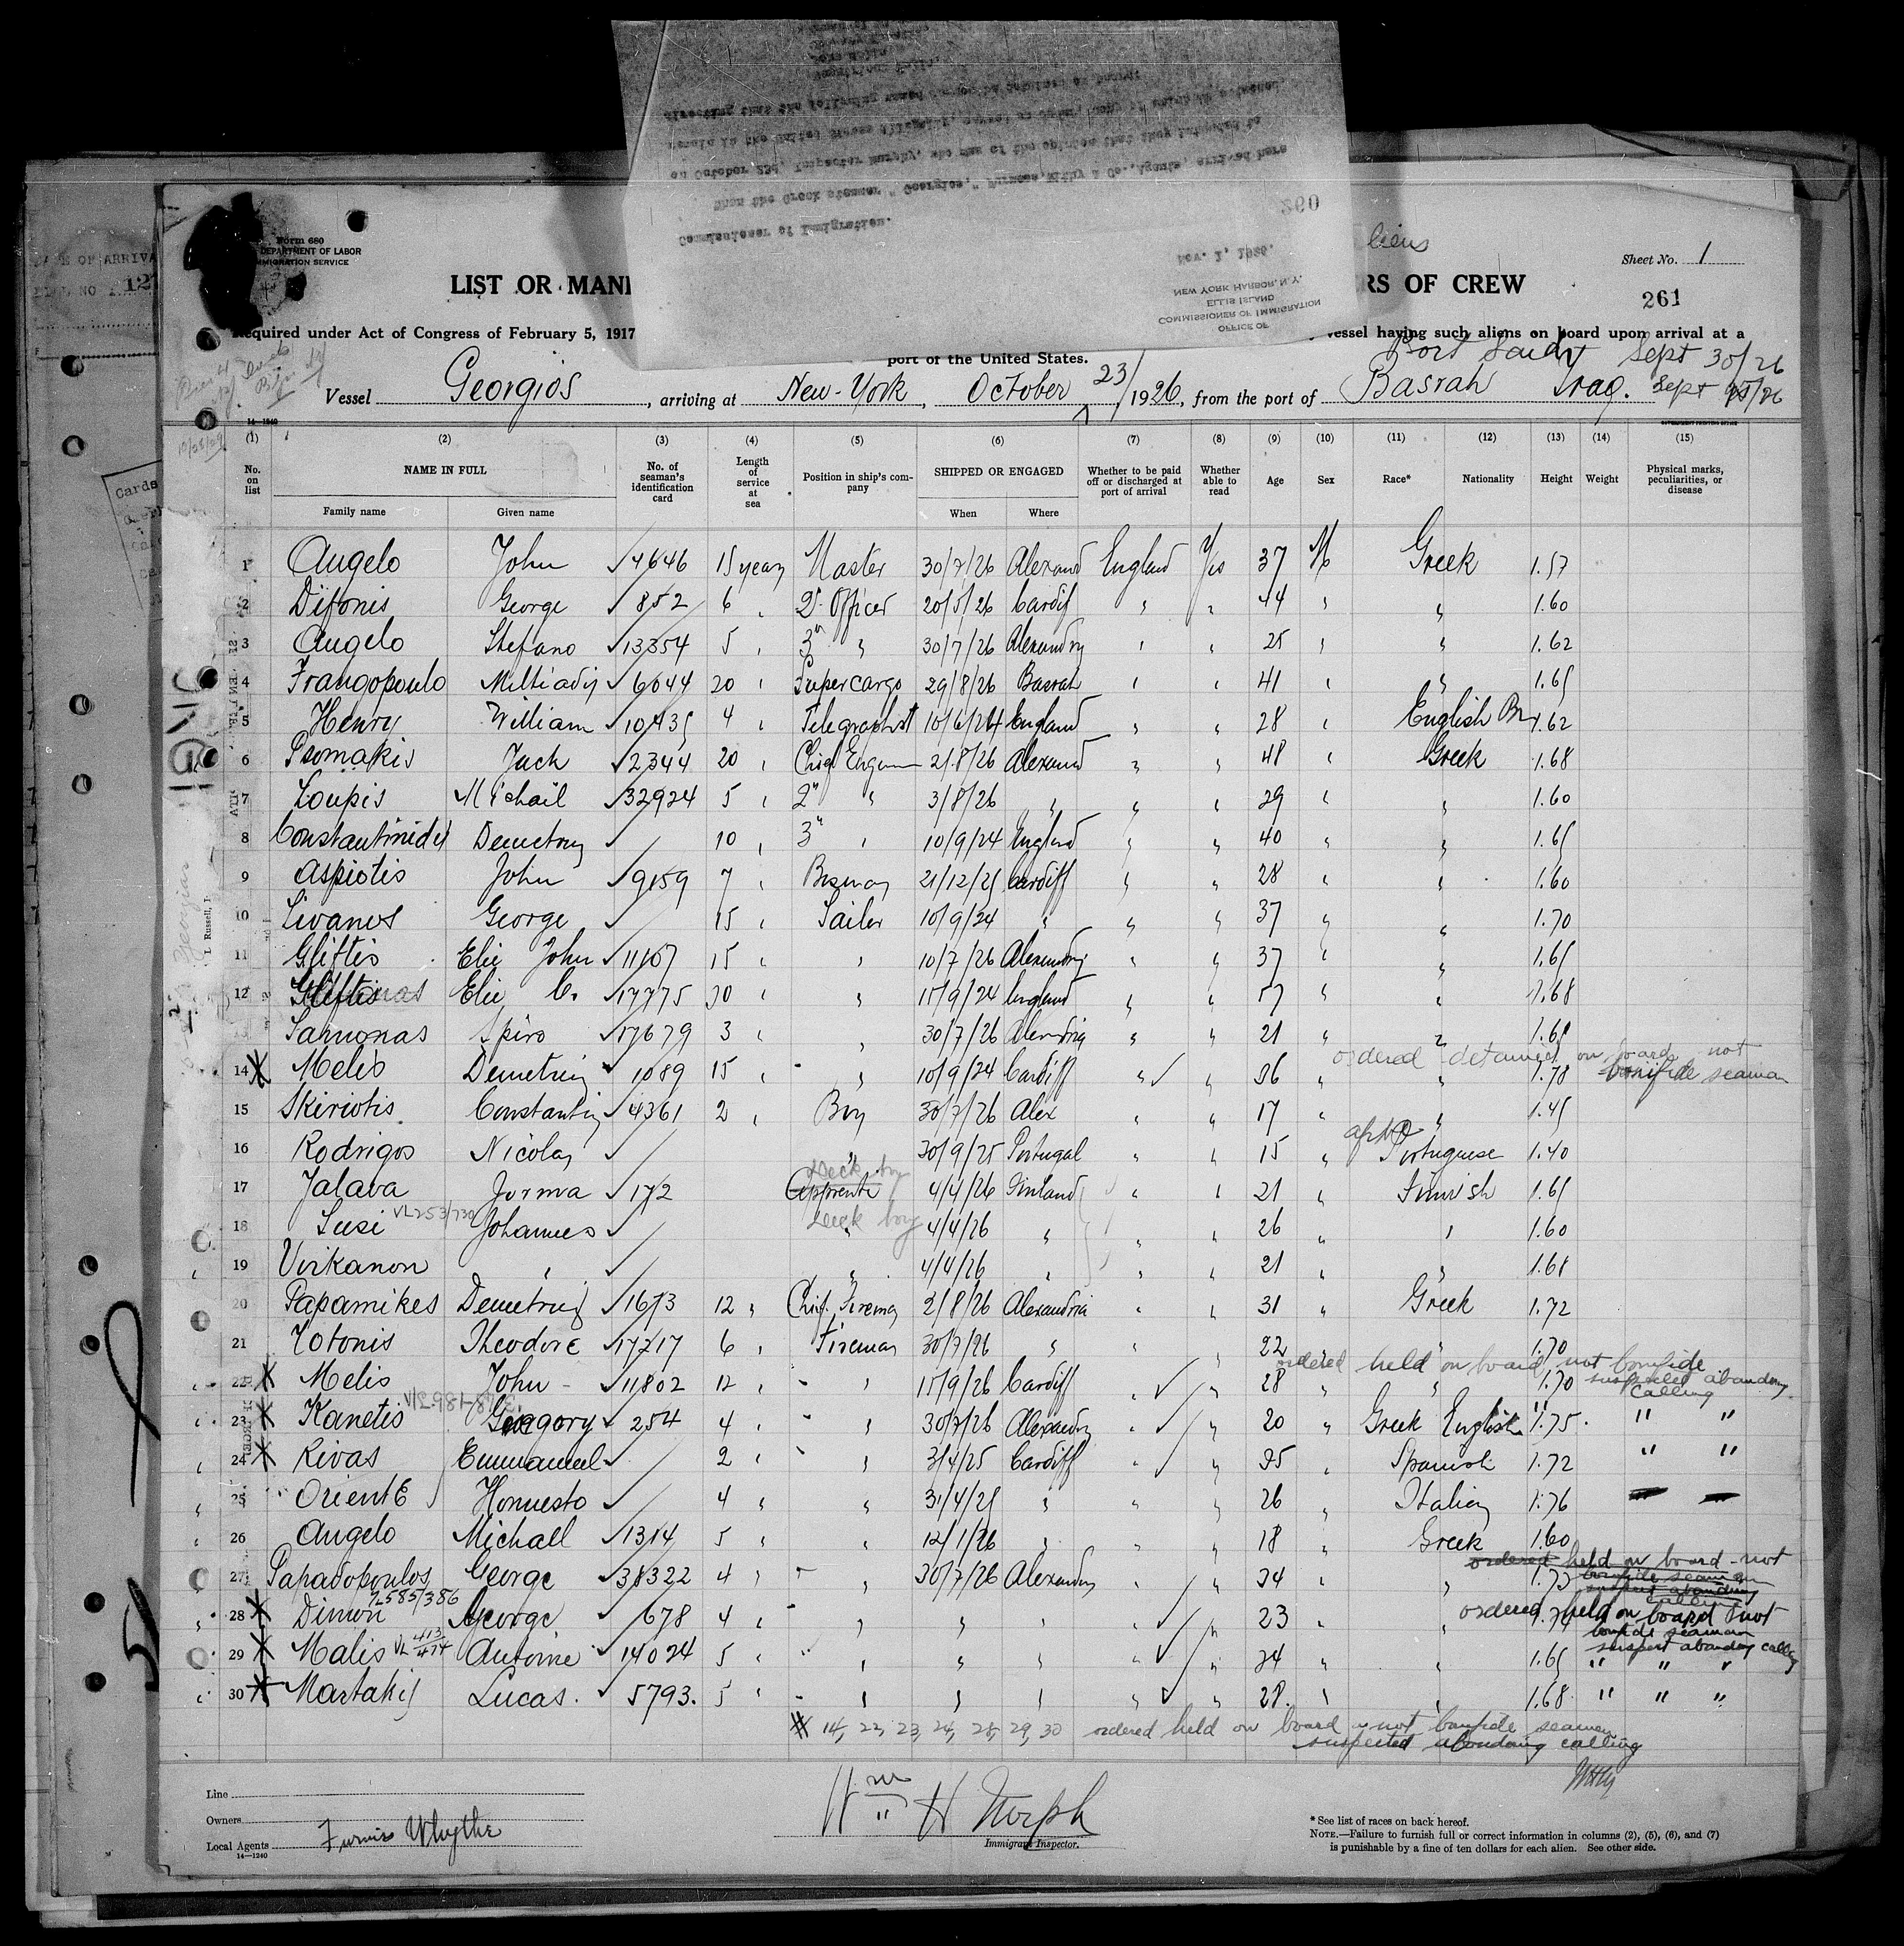 Commissioner of Immigration.
When the Greek steamer "Georgios," Furness, Withy & Co., Agents, arrived here
on October 23d, Inspector Murphy, who was of the opinion that they intended to
remain in the United States illegally,
directing that the following named
OFFICE OF
COMMISSIONER OF IMMIGRATION
ELLIS ISLAND
NEW YORK HARBOR, N.Y.
Nov. 1, 1926.
260
Form 680
DEPARTMENT OF LABOR
IMMIGRATION SERVICE
Sheet No. 1
LIST OR MANI
RS OF CREW
261
Required under Act of Congress of February 5, 1917
vessel having such aliens on board upon arrival at a
port of the United States.
Port Said Sept 30/26
Vessel Georgios, arriving at New-York, October 23/1926, from the port of Basrah Iraq. Sept
(1) (2) (3) (4) (5) (6) (7) (8) (9) (10) (11) (12) (13) (14) (15)
No. on list
NAME IN FULL
Family name
Given name
No. of seaman's identification card
Length of service at sea
Position in ship's company
SHIPPED OR ENGAGED
When
Where
Whether to be paid off or discharged at port of arrival
Whether able to read
Age
Sex
Race*
Nationality
Height
Weight
Physical marks, peculiarities, or disease
1 Angelo John 4646 15 years Master 30/7/26 Alexand England Yes 37 M Greek 1.57
2 Difonis George 852 6 " 2" Officer 20/5/26 Cardif " " 44 " " 1.60
3 Angelo Stefano 13354 5 " 3" " 30/7/26 Alexandry " " 25 " " 1.62
4 Frangopoulo Miltiadis 6044 20 " Supercargo 29/8/26 Basrah " " 41 " " 1.65
5 Henry William 10435 4 " Telegraphist 10/6/24 England " " 28 " English Br 1.62
6 Psomakis Jack 2344 20 " Chief Engineer 2/8/26 Alexand " " 48 " Greek 1.68
7 Loupis Michail 32924 5 " 2" " 3/8/26 " " " 29 " " 1.60
8 Constantinidis Demetry 10 " 3" " 10/9/24 England " " 40 " " 1.65
9 Aspiotis John 9159 7 " Bosman 21/12/25 Cardiff " " 28 " " 1.60
10 Livanos George 15 " Sailor 10/9/24 " " " 37 " " 1.70
11 Gliftis Elie John 11107 15 " " 10/7/26 Alexandry " " 37 " " 1.65
12 Gliftis Elie C. 17775 30 " " 15/9/24 England " " 57 " " 1.68
13 Samonas Spiro 17679 3 " 30/7/26 Alexandria " " 21 " "
ordered detained on board not
14 Melis Demetrius 1089 15 " " 10/9/24 Cardiff " " 36 " " 1.78 bonifide seaman
15 Skiriotis Constantin 4361 2 " Boy 30/7/26 Alex " " 17 " " 1.45
16 Rodrigos Nicolas " 30/9/25 Portugal " " 15 " Portuguese 1.40
Deck boy
17 Jalava Jorma 172 Apprenti 4/4/26 Finland " " 21 " Finnish 1.65
VL253/730
Deck boy
18 Susi Johannes " 4/4/26 " " " 26 " " 1.60
19 Virkanon " " 4/4/26 " " " 21 " " 1.68
20 Papamikes Demetrius 1673 12 " Chief Fireman 2/8/26 Alexandria " " 31 " Greek 1.72
21 Totonis Theodore 17717 6 " Fireman 30/7/26 " " " 22 " " 1.70
ordered held on board not bonifide
22 Melis John 11802 12 " " 15/9/26 Cardiff " " 28 " " 1.70 suspected abandoning
calling
23 Kanetis Gregory 254 4 " " 30/7/26 Alexandry " " 20 " Greek English 1.75 " "
24 Rivas Emmanuel 2 " " 3/4/25 Cardiff " " 35 " Spanish 1.72 " "
25 Oriente Honnesto 4 " " 31/4/25 " " " 26 " Italian 1.76
26 Angelo Michall 1314 5 " " 12/1/26 " " " 18 " Greek 1.60
ordered held on board not
27 Papadopoulos George 38322 4 " " 30/7/26 Alexandry " " 24 " " 1.73 bonifide seaman
suspect abandoning
calling
VL585/386
ordered held on board not
28 Dimon George 678 4 " " " " " " 23 " "
bonifide seaman
suspect abandoning calling
29 Malis VL 413/474 Antoine 14024 5 " " " " " " 24 " " 1.65 " " "
30 Martakis Lucas. 5793. 5 " " " " " " 28. " " 1.68 " " "
# 14, 22, 23, 24, 28, 29, 30 ordered held on board not bonifide seamen
suspected abandoning calling
WHM
Line
Owners
Local Agents Furness Whythe
14—1240
Wm H Murph
Immigrant Inspector.
* See list of races on back hereof.
NOTE.—Failure to furnish full or correct information in columns (2), (5), (6), and (7)
is punishable by a fine of ten dollars for each alien. See other side.